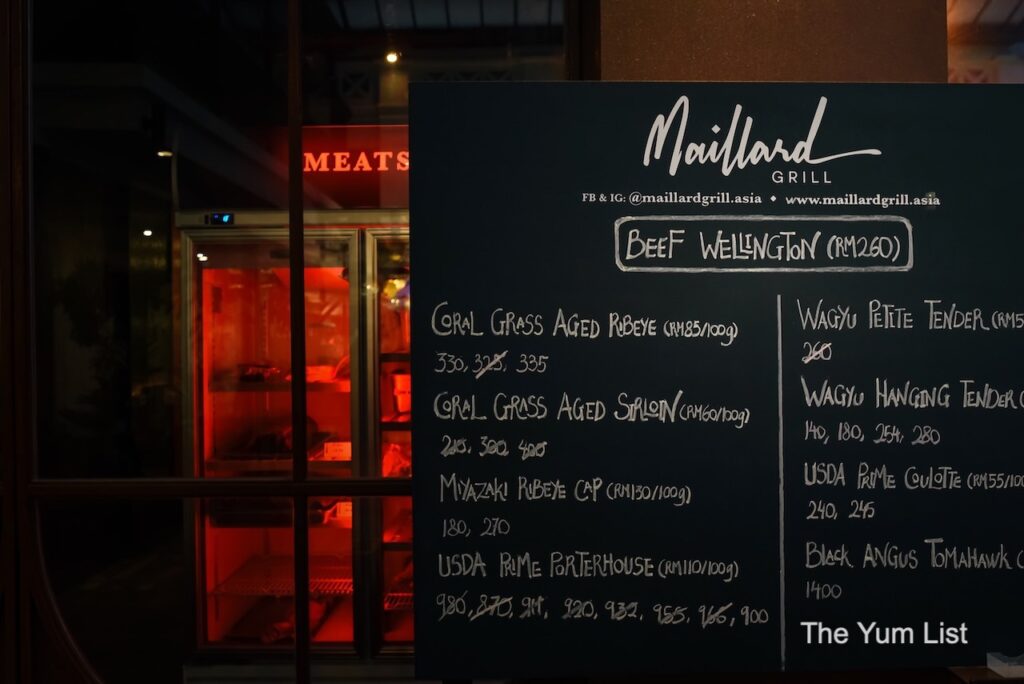 MEATS
Maillard
GRILL
FB & IG: @maillardgrill.asia • www.maillardgrill.asia
BEEF WELLINGTON (RM260)
CORAL GRASS AGED RIBEYE (RM85/100g)
330, 325, 335
CORAL GRASS AGED SIRLOIN (RM60/100g)
300
MIYAZAKI RIBEYE CAP (RM130/100g)
180, 270
USDA PRIME PORTERHOUSE (RM110/100g)
980, 870, 920, 932, 955, 965, 900
WAGYU PETITE TENDER (RM5
260
WAGYU HANGING TENDER (
140, 180, 254, 280
USDA PRIME COULOTTE (RM55/100
240, 245
BLACK ANGUS TOMAHAWK (
1400
The Yum List